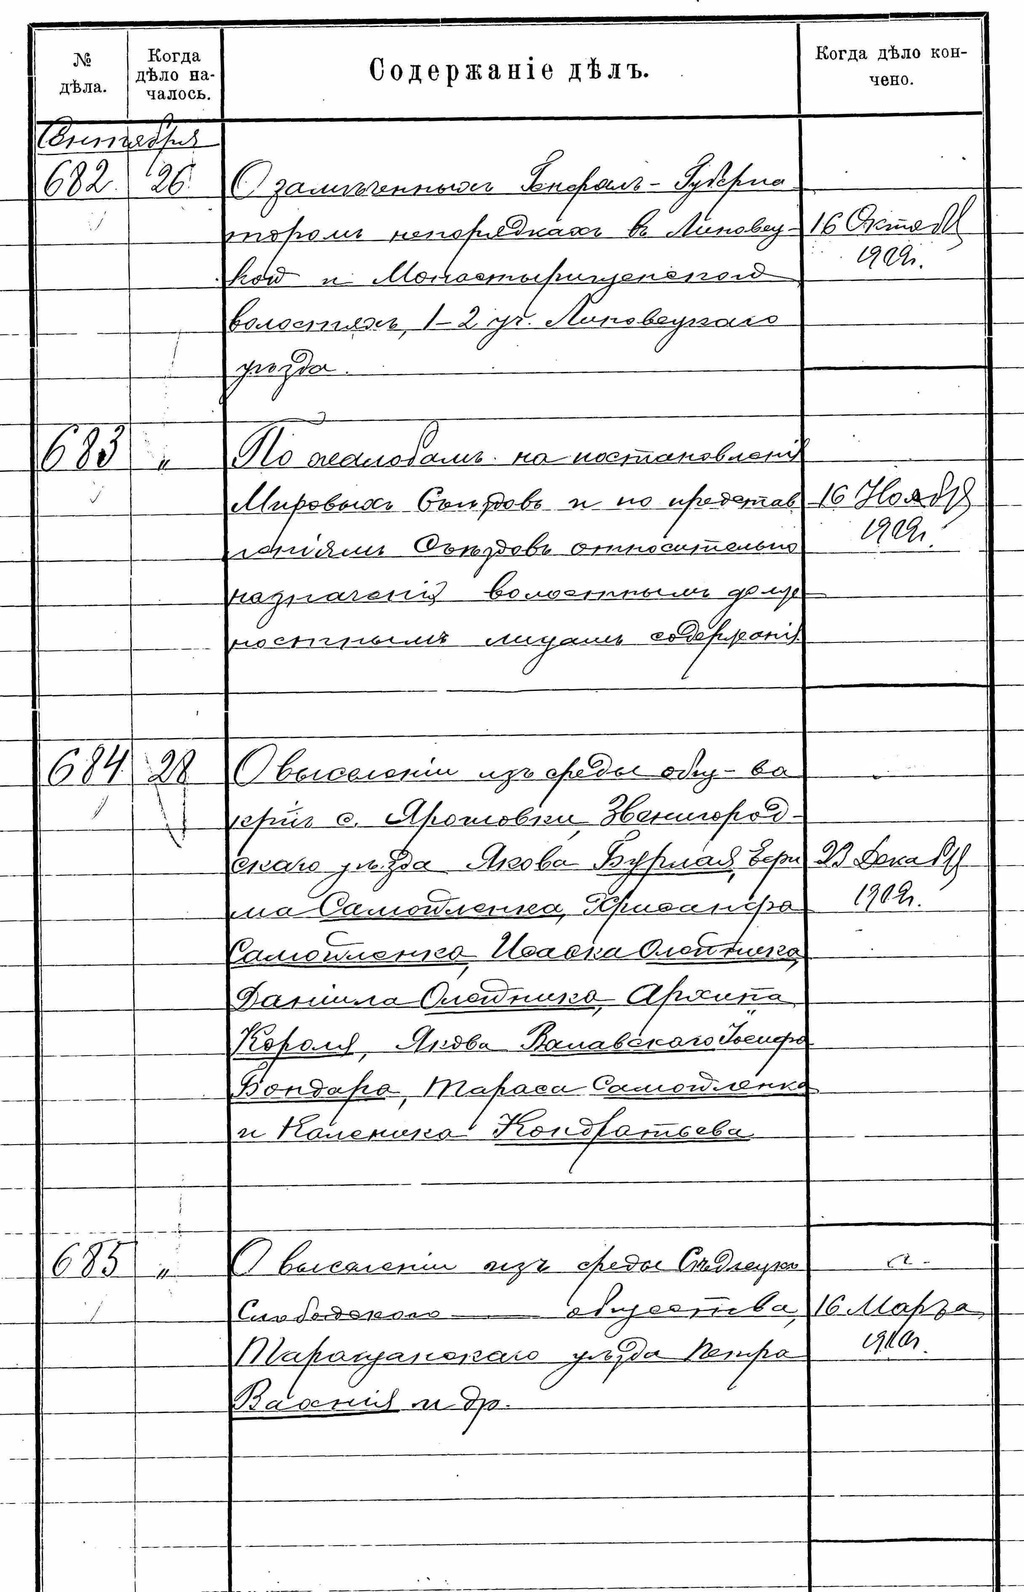 № дѣла.
Когда дѣло на-
чалось.
Содержаніе дѣлъ.
Когда дѣло кон-
чено.
Сентября
682 26 О замѣченныхъ Генералъ-Губерна
торомъ непорядкахъ въ Липовец-
кой и Монастырищенской
волостяхъ, 1-2 уч. Липовецкаго
уѣзда.
16 Октября
1909г.
683 " По жалобамъ на постановленія
Мировыхъ Съѣздовъ и по представ
леніямъ Съѣздовъ относительно
назначенія волостнымъ долж
ностнымъ лицамъ содержанія.
16 Ноября
1909г.
684 28 О выселеніи изъ среды общ-ва
крѣ с. Ярошовки, Звенигород-
скаго уѣзда Якова Бурлая,
ма Самойленка, Хрисанфа
Самойленка, Исаака Олейника,
Даніила Олейника, Архипа
Короля, Якова Валавскаго, Іосифа
Бондара, Тараса Самойленка
и Каленика Кондратьева
23 Декабря
1909г.
685 " О выселеніи изъ среды
Слободского общества,
Таращанскаго уѣзда Петра
Вахнія и др.
16 Марта
1910г.